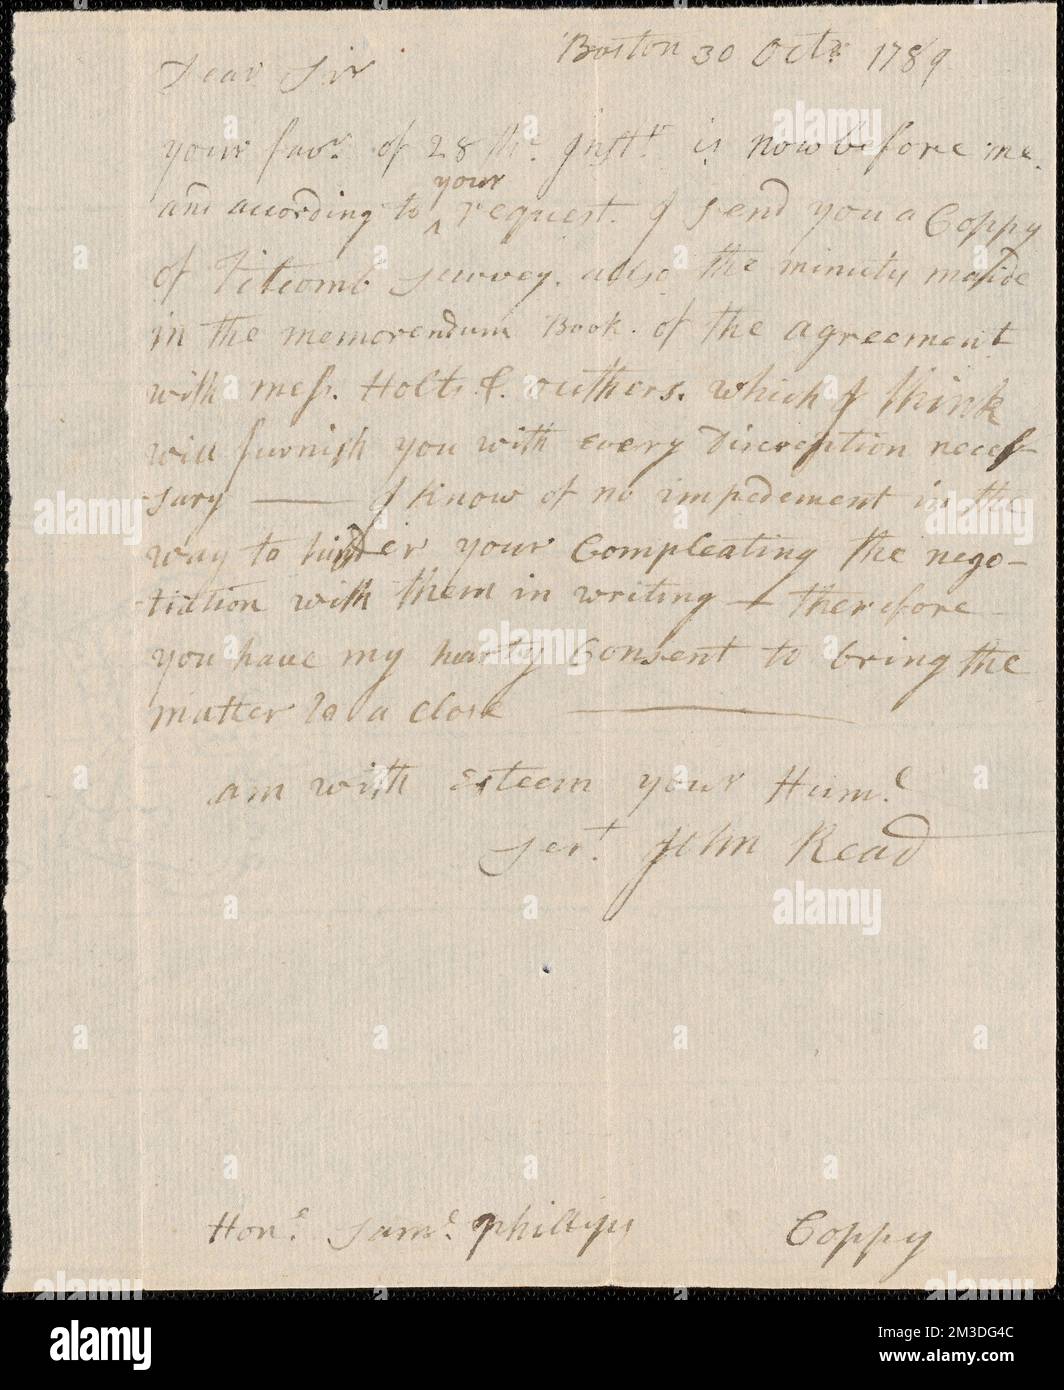 Boston 30 Octr 1789
Dear Sir
your favr. of 28 thr. Instt. is now before me.
and according to ^your request. I send you a Coppy
of Titcomb Survey. also the minuts made
in the memorendum Book. of the agreement
with mess. Holts &. outhers. which I think
will furnish you with every Discreption neces
sary — I know of no impedement in the
way to hinder your Compleating the nego-
tiation with them in writing — therefore
you have my harty Consent to bring the
matter to a close —
am with esteem your Hume.
Sert. John Read
Hone. Same. Phillips Coppy
alamy
Image ID: 2M3DG4C
www.alamy.com